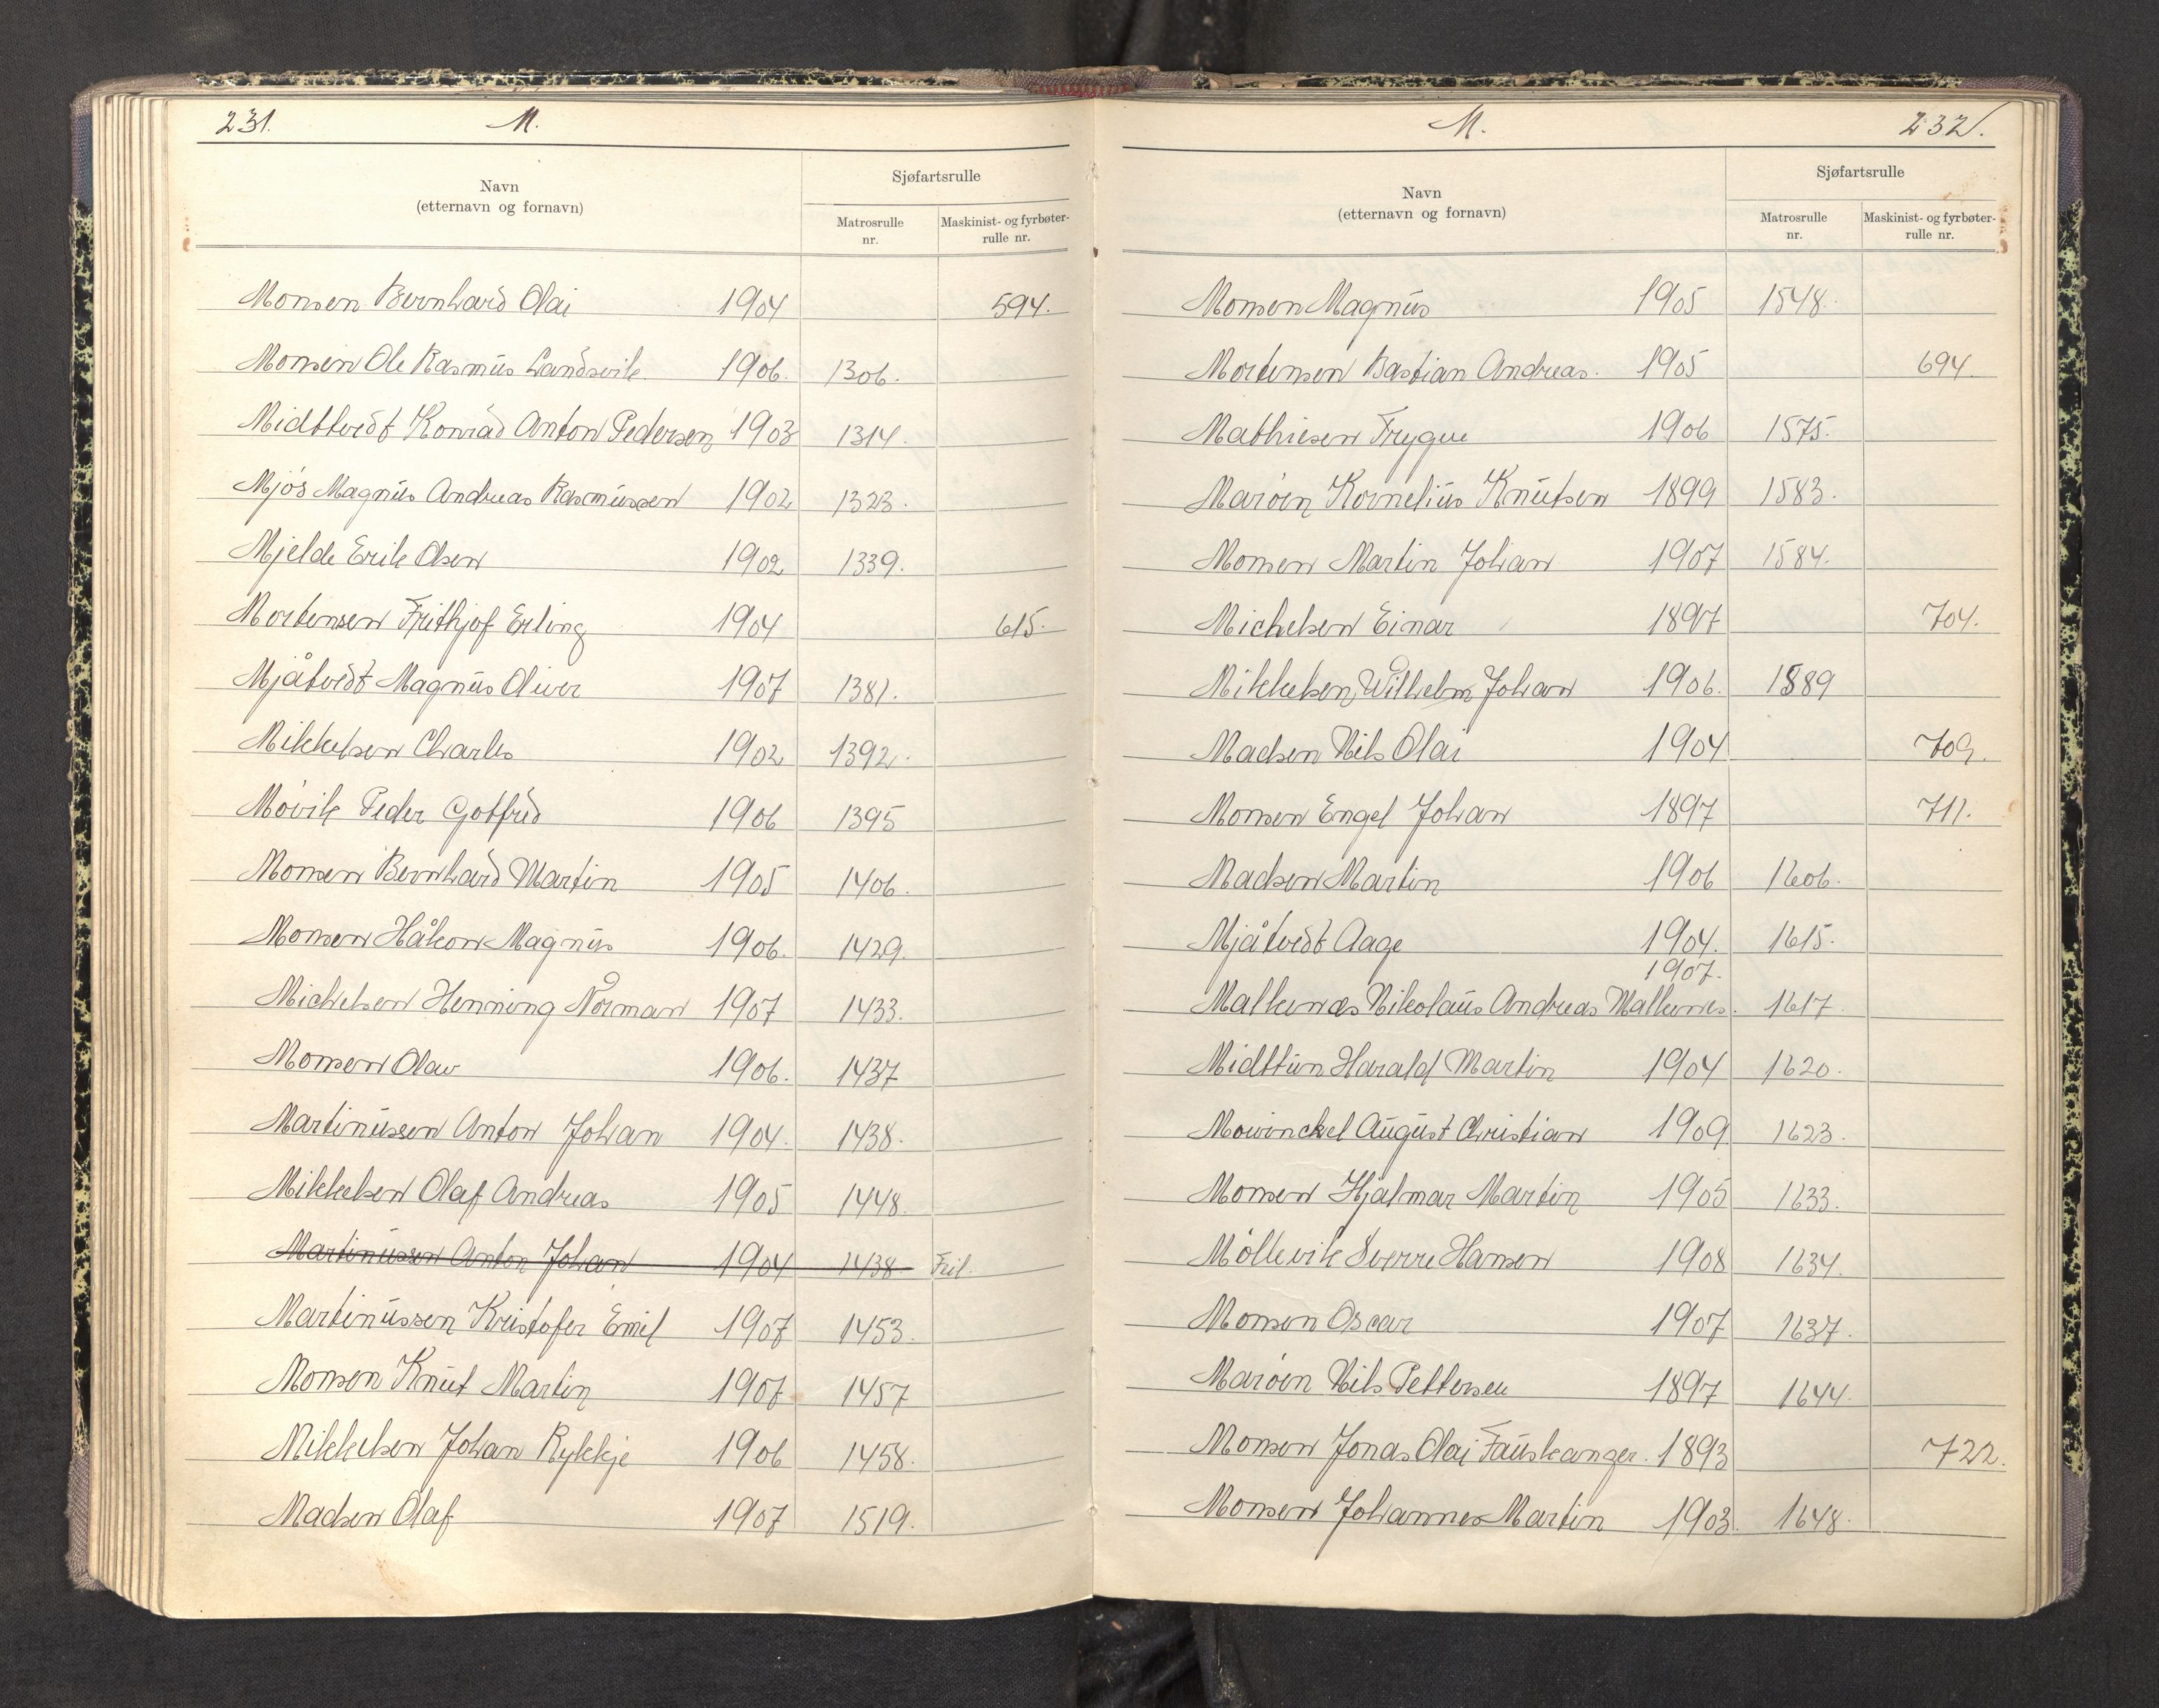 231.
M.
Navn
(etternavn og fornavn)
Sjøfartsrulle
Matrosrulle
nr.
Maskinist- og fyrbøter-
rulle nr.
Monsen Bernhard Olai 1904 594.
Monsen Ole Rasmus Landsvik 1906. 1306.
Midttvedt Konrad Anton Pedersen 1903 1314.
Mjøs Magnus Andreas Rasmussen 1902 1323.
Mjelde Erik Olsen 1902 1339.
Mortensen Frithjof Erling 1904 615.
Mjåtvedt Magnus Oliver 1907 1381.
Mikkelsen Charles 1902 1392.
Møvik Peder Gotfred 1906 1395
Monsen Bernhard Martin 1905 1406.
Monsen Håkon Magnus 1906. 1429.
Michelsen Henning Norman 1907 1433.
Monsen Olav 1906. 1437
Martinussen Anton Johan 1904. 1438.
Mikkelsen Olaf Andreas 1905 1448.
Martinussen Anton Johan 1904 1438. Feil.
Martinussen Kristofer Emil 1907 1453.
Monsen Knut Martin 1907 1457
Mikkelsen Johan Rykkje 1906 1458.
Madsen Olaf 1907 1519.
M.
232.
Navn
(etternavn og fornavn)
Sjøfartsrulle
Matrosrulle
nr.
Maskinist- og fyrbøter-
rulle nr.
Monsen Magnus 1905 1548.
Mortensen Bastian Andreas. 1905 694.
Mathiesen Trygve 1906 1575.
Marøen Kornelius Knutsen 1899 1583.
Monsen Martin Johan 1907 1584.
Michelsen Einar 1897 704.
Mikkelsen, Wilhelm Johan 1906. 1589
Madsen Nils Olai 1904 709.
Monsen Engel Johan 1897 711.
Madsen Martin 1906 1606.
Mjåtvedt Aage 1904. 1615.
1907.
Malkenæs Nikolaus Andreas Malkenes. 1617
Midttun Harald Martin 1904 1620.
Mowinckel August Christian 1909 1623.
Monsen Hjalmar Martin 1905 1633.
Møllevik Sverre Hansen 1908 1634.
Monsen Oscar 1907 1637.
Marøen Nils Pettersen 1897 1644.
Monsen Jonas Olai Fauskanger. 1893 722.
Monsen Johannes Martin 1903. 1648.